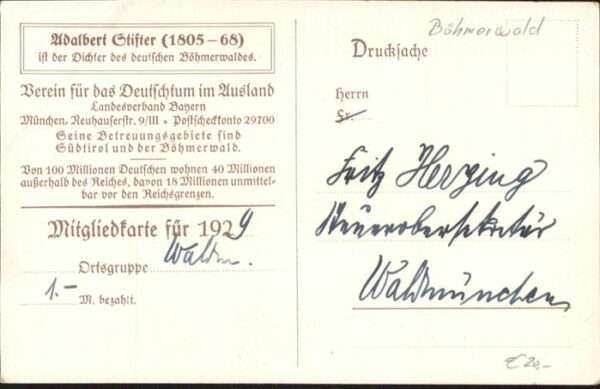 Adalbert Stifter (1805–68)
ist der Dichter des deutschen Böhmerwaldes.
Verein für das Deutschtum im Ausland
Landesverband Bayern
München, Neuhauserstr. 9/III • Postscheckkonto 29700
Seine Betreuungsgebiete sind
Südtirol und der Böhmerwald.
Von 100 Millionen Deutschen wohnen 40 Millionen
außerhalb des Reiches, davon 18 Millionen unmittel-
bar vor den Reichsgrenzen.
Mitgliedkarte für 1929
Ortsgruppe Waldm.
1.- M. bezahlt.
Böhmerwald
Drucksache
Herrn
Fr.
Fritz Herzing
Steuerobersekretär
Waldmünchen
€ 20,-